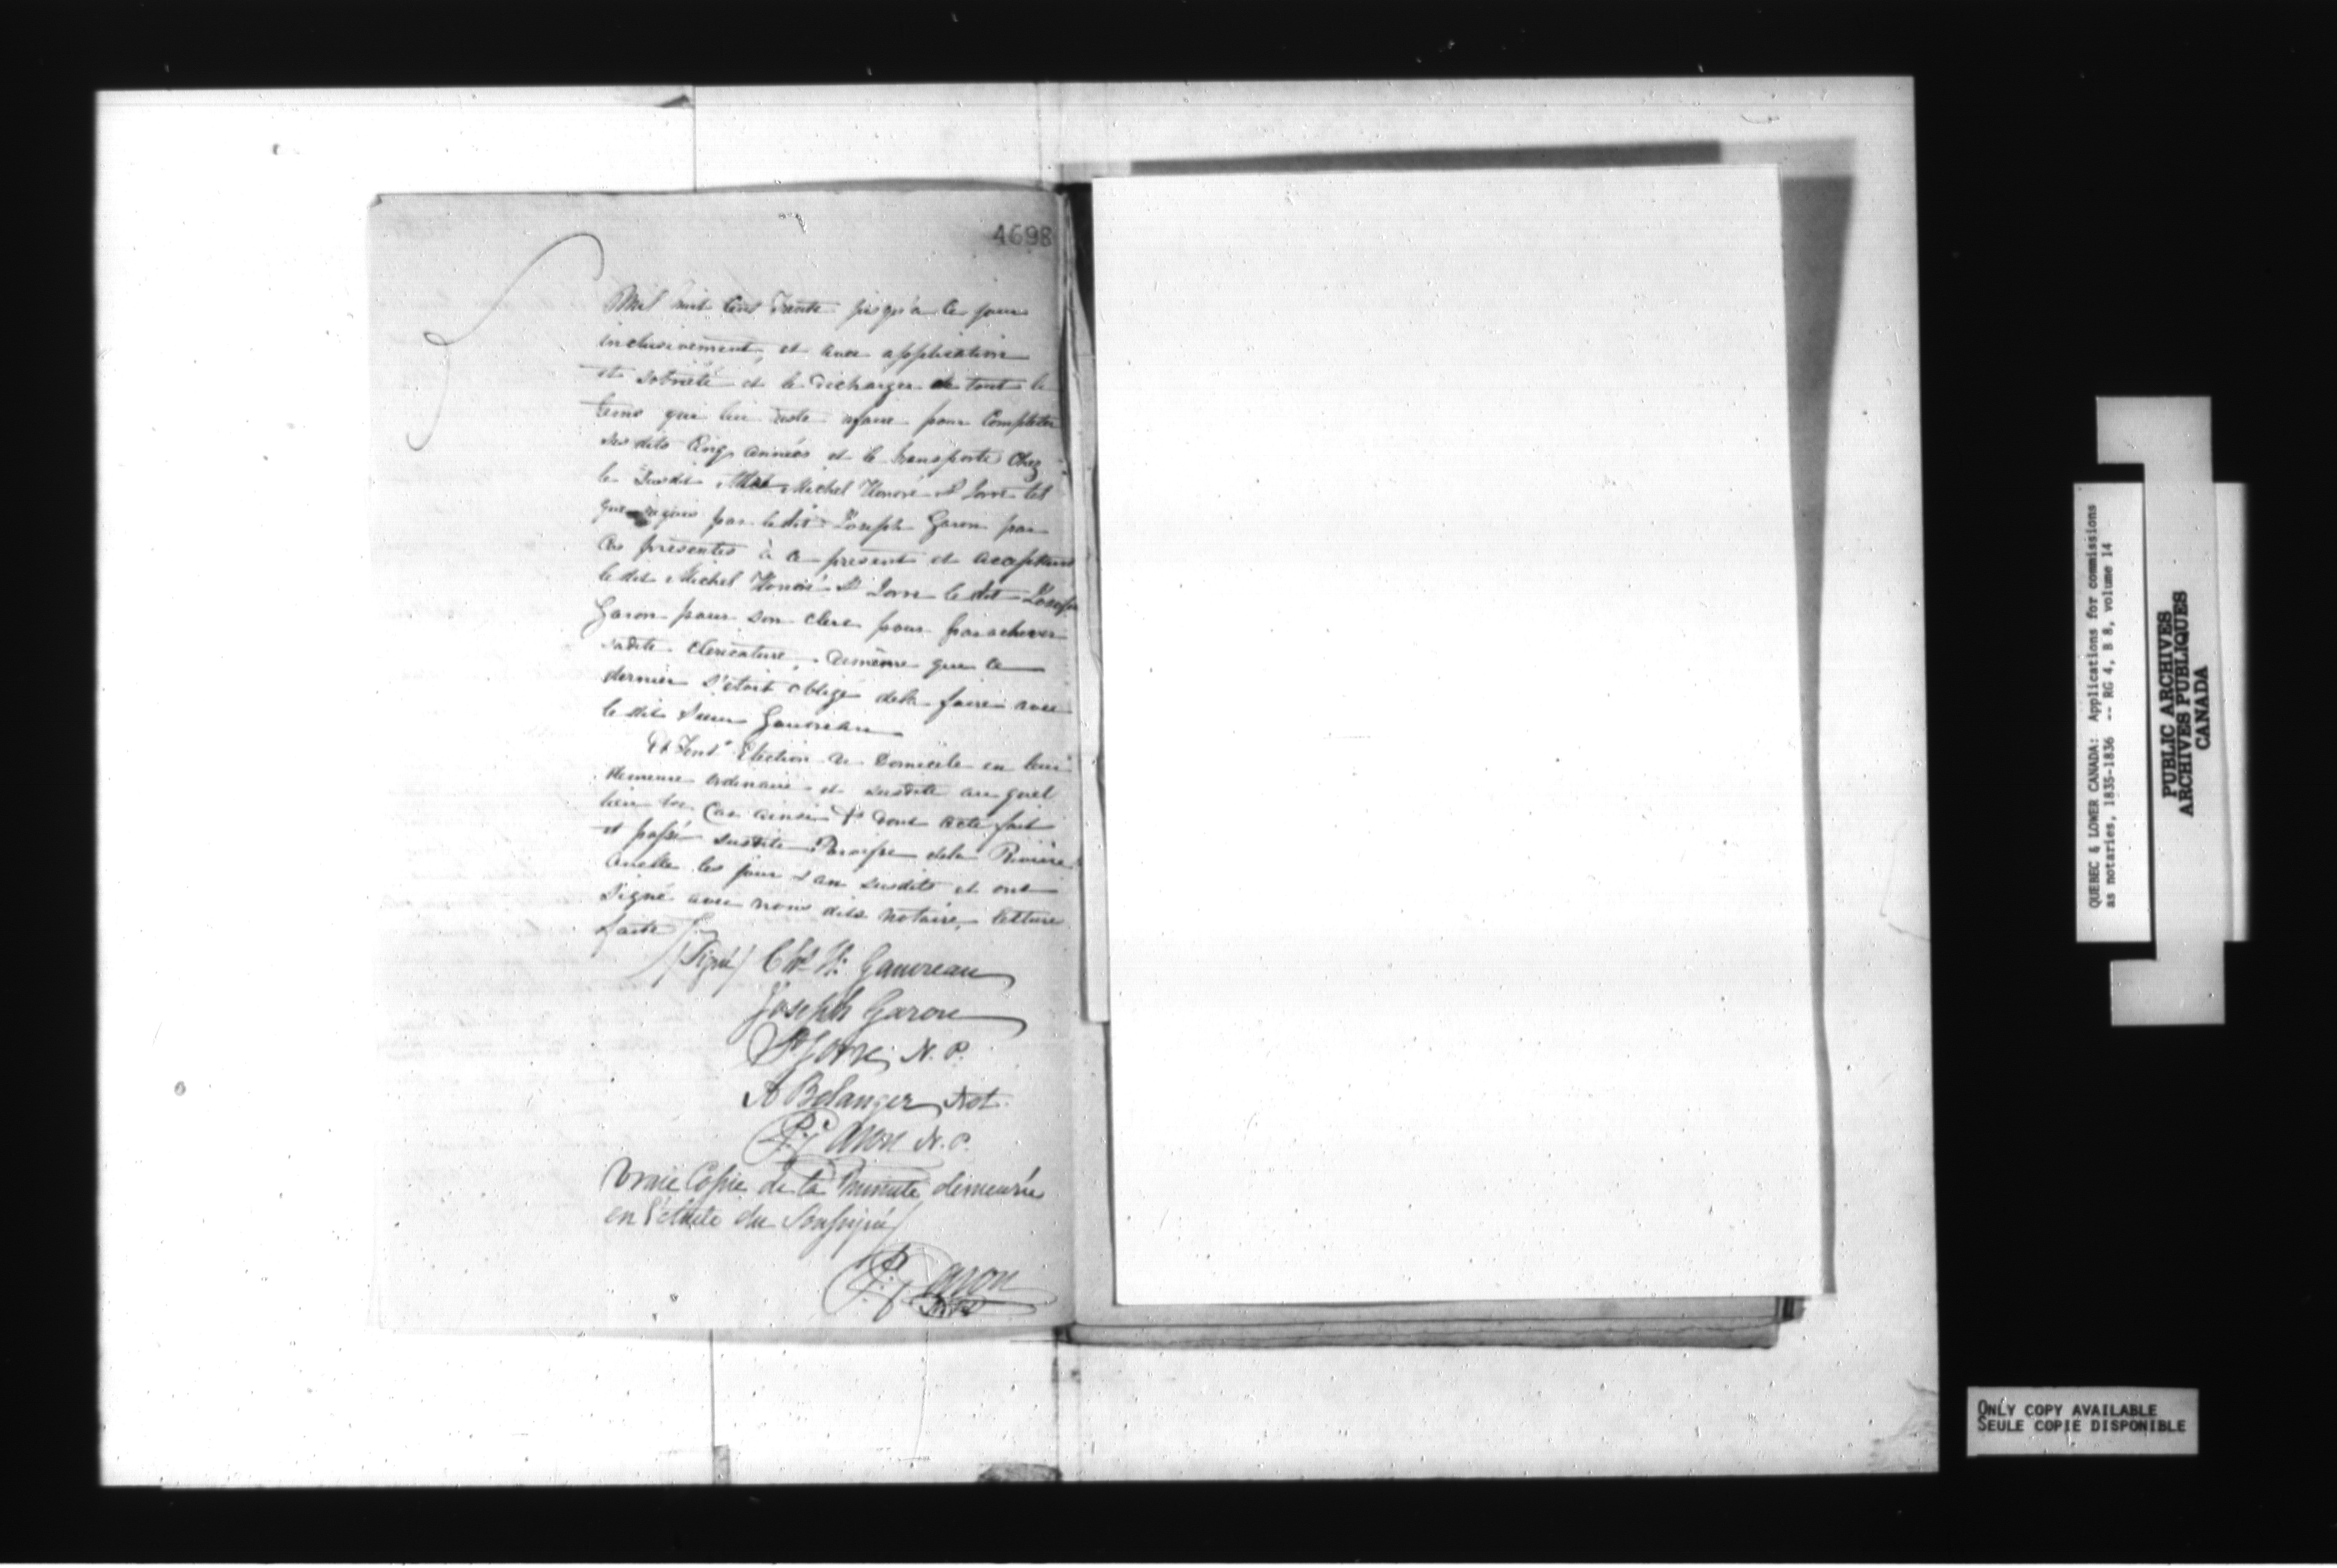 4698
Mil huit Cent Trente jusqu'à ce jour
inclusivement, et avec application
et sobriété et le décharger de tout le
tems qui lui reste afaire pour Completer
ses dits Cinq années et le transporte Chez
le Susdit Michel Honoré St Jorre tel
que par le dit Joseph Garon par
Ces présentes à ce présent et acceptant
le dit Michel Honoré St Jorre le dit Joseph
Garon pour son clerc pour parachever
sadite clericature, demême que ce
dernier s'étoit obligé dela faire avec
le dit Sieur Gauvreau
Et Font Election de Domicile en leur
demeure ordinaire et susdite au quel
lieu &c. Car ainsi &c dont acte fait
et passé susdite Paroisse dela Rivière
Ouelle les jour & an susdits et ont
Signé avec nous dits notaire, lecture
faite
(Signé) Chs. H: Gauvreau
Joseph Garon
St Jorre, N. P.
A Belanger Not.
P: Garon N. P.
Vraie Copie de la Minute demeurée
en l'étude du Soussigné
P: Garon
N.P.
QUEBEC & LOWER CANADA: Applications for commissions
as notaries, 1835-1836 -- RG 4, B 8, volume 14
PUBLIC ARCHIVES
ARCHIVES PUBLIQUES
CANADA
ONLY COPY AVAILABLE
SEULE COPIE DISPONIBLE